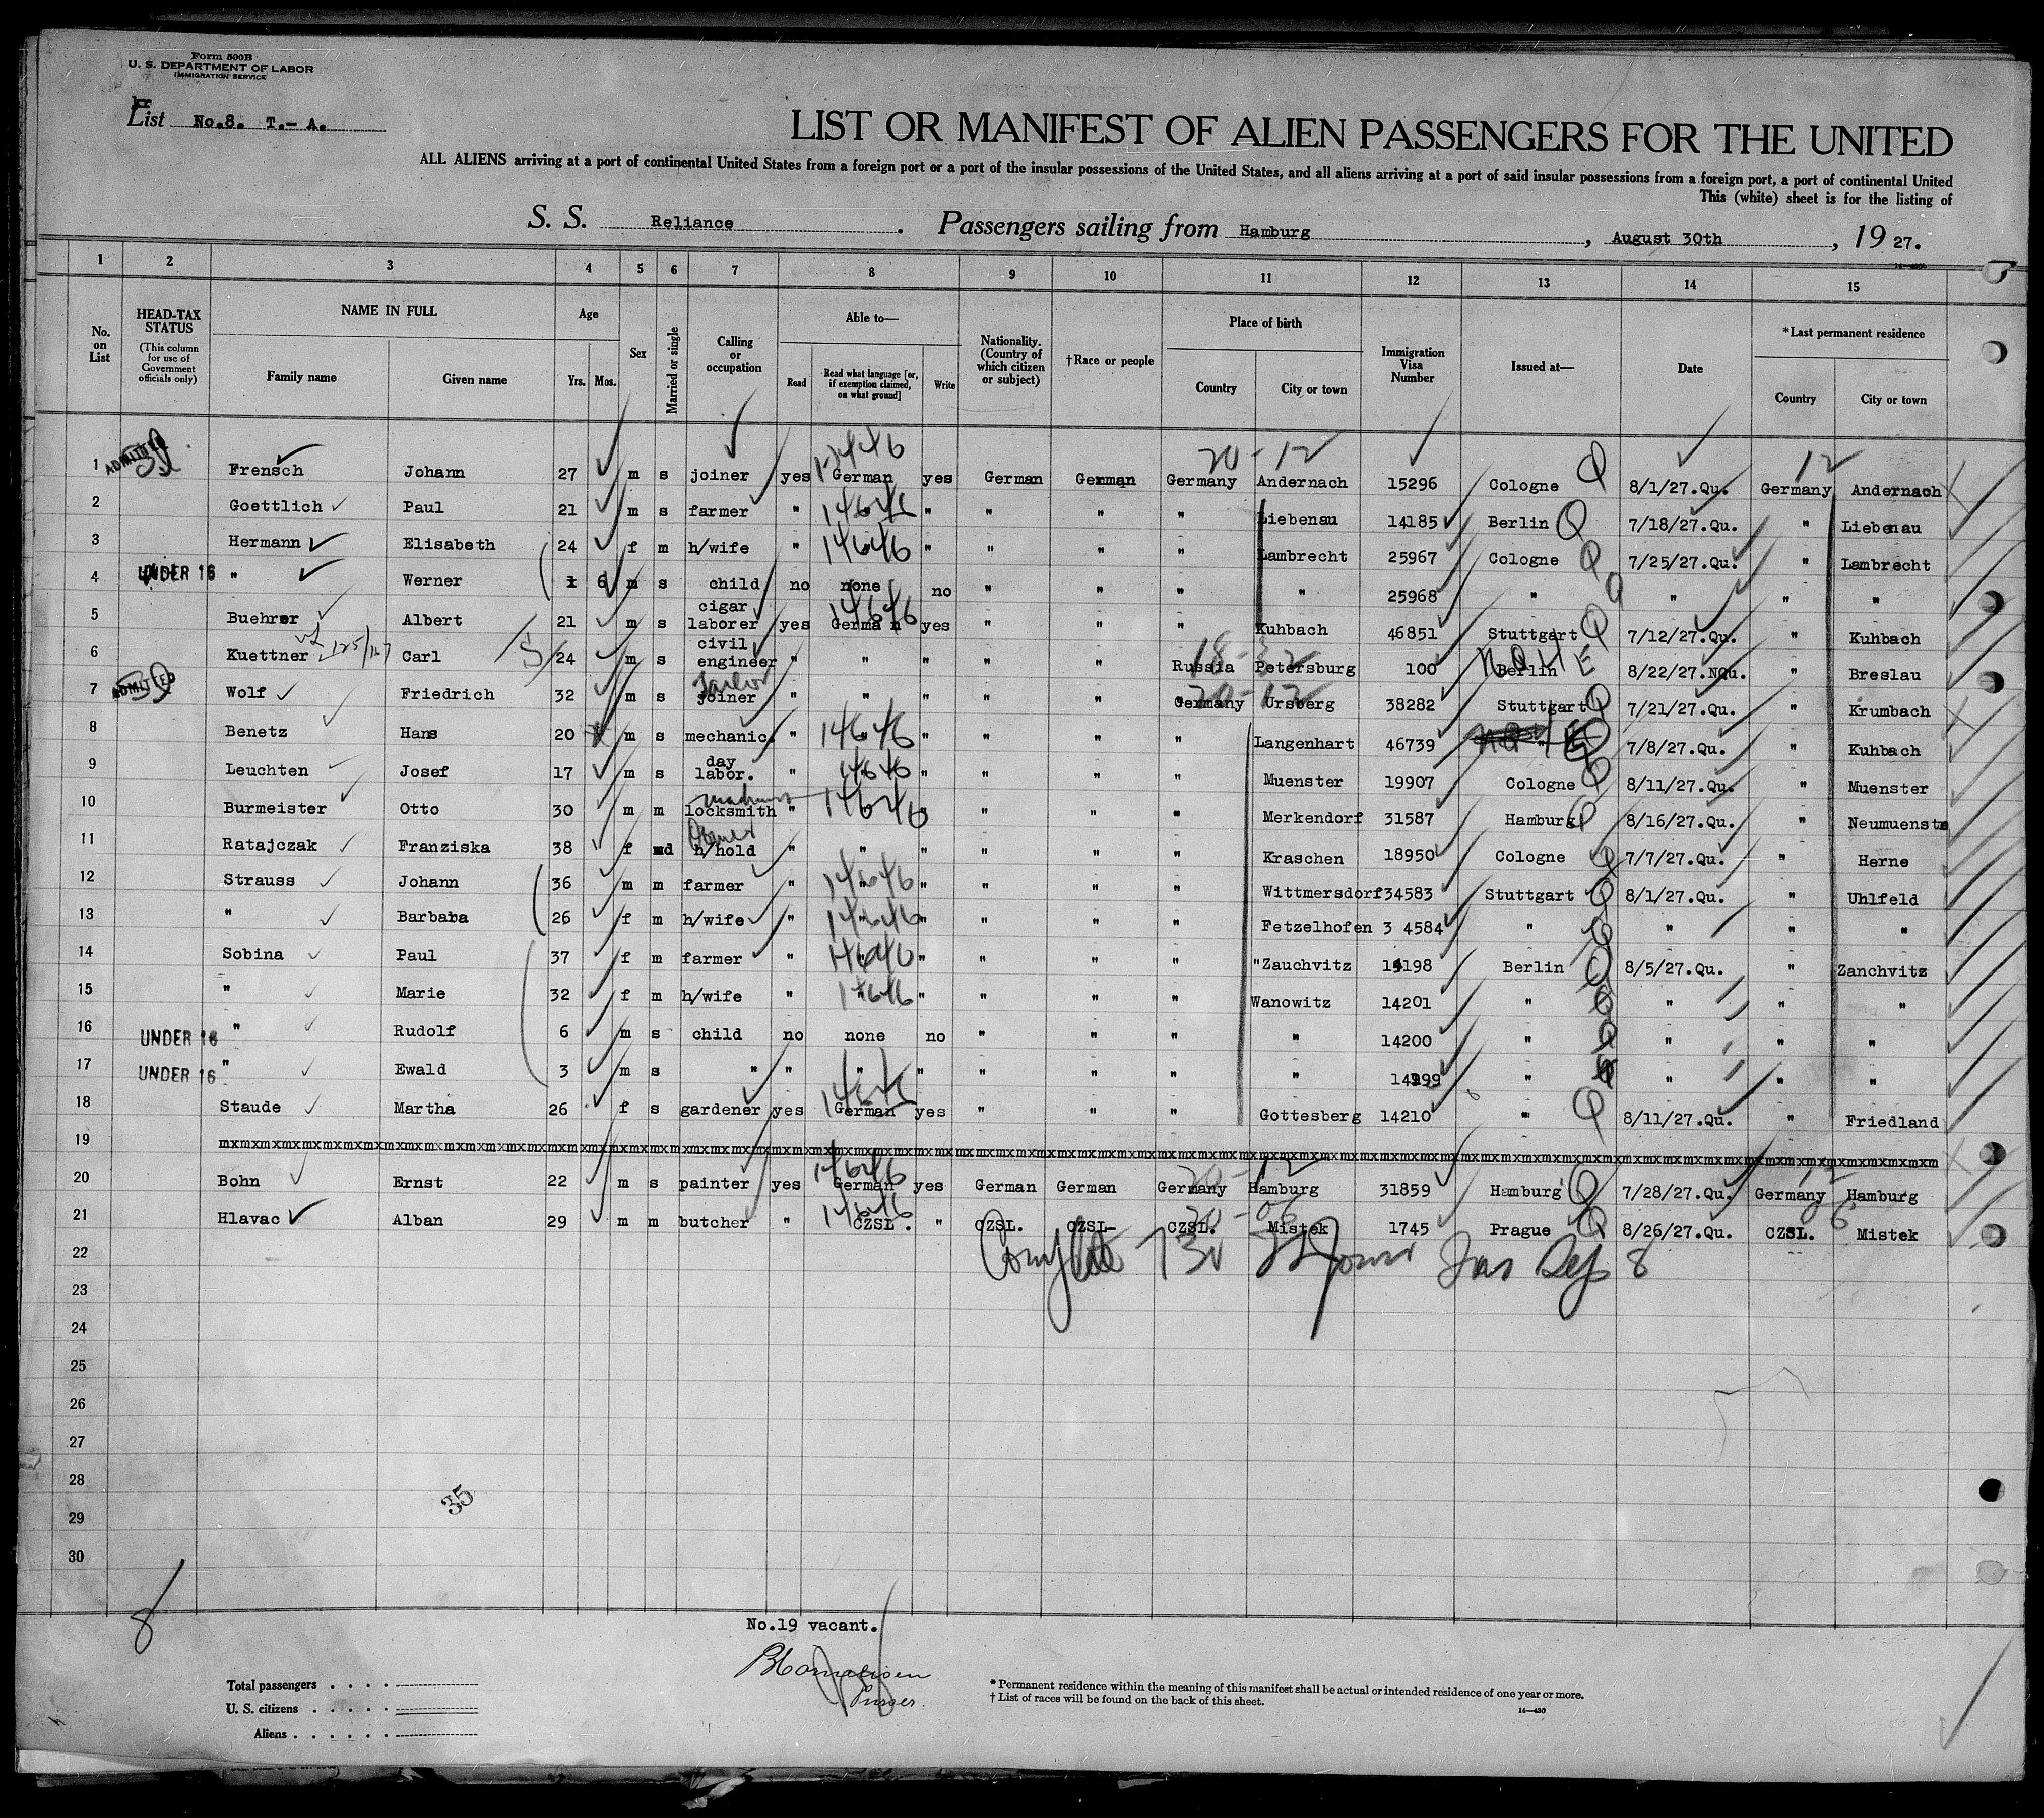 Form 500B
U. S. DEPARTMENT OF LABOR
IMMIGRATION SERVICE
List No.8. T.- A.
LIST OR MANIFEST OF ALIEN PASSENGERS FOR THE UNITED
ALL ALIENS arriving at a port of continental United States from a foreign port or a port of the insular possessions of the United States, and all aliens arriving at a port of said insular possessions from a foreign port, a port of continental United
This (white) sheet is for the listing of
S. S. Reliance. Passengers sailing from Hamburg, August 30th, 1927.
1 2 3 4 5 6 7 8 9 10 11 12 13 14 15
No. on List
HEAD-TAX STATUS
(This column for use of Government officials only)
NAME IN FULL
Family name Given name
Age
Yrs. Mos.
Sex
Married or single
Calling or occupation
Able to—
Read
Read what language [or, if exemption claimed, on what ground]
Write
Nationality. (Country of which citizen or subject)
†Race or people
Place of birth
Country City or town
Immigration Visa Number
Issued at—
Date
*Last permanent residence
Country City or town
1 ADMITTED Frensch Johann 27 m s joiner yes German yes German German Germany Andernach 15296 Cologne Q 8/1/27.Qu. Germany Andernach
20-12 12
2 Goettlich Paul 21 m s farmer " 14646 " " " " Liebenau 14185 Berlin Q 7/18/27.Qu. " Liebenau
3 Hermann Elisabeth 24 f m h/wife " 14646 " " " " Lambrecht 25967 Cologne Q 7/25/27.Qu. " Lambrecht
4 UNDER 16 " Werner 1 6 m s child no none no " " " " 25968 " Q " " "
5 Buehrer Albert 21 m s cigar laborer yes German 14646 yes " " " Kuhbach 46851 Stuttgart Q 7/12/27.Qu. " Kuhbach
6 Kuettner Carl 24 m s civil engineer " " " " " Russia Petersburg 100 Berlin 8/22/27.NQu. " Breslau
7 ADMITTED Wolf Friedrich 32 m s joiner Tailor " " " " " Germany Ursberg 38282 Stuttgart Q 7/21/27.Qu. " Krumbach
20-12
8 Benetz Hans 20 m s mechanic. " 14646 " " " " Langenhart 46739 7/8/27.Qu. " Kuhbach
9 Leuchten Josef 17 m s day labor. " 14646 " " " " Muenster 19907 Cologne Q 8/11/27.Qu. " Muenster
10 Burmeister Otto 30 m m locksmith " 14646 " " " " Merkendorf 31587 Hamburg Q 8/16/27.Qu. " Neumuenste
11 Ratajczak Franziska 38 f wd h/hold " " " " " " Kraschen 18950 Cologne Q 7/7/27.Qu. " Herne
12 Strauss Johann 36 m m farmer " 14646 " " " " Wittmersdorf 34583 Stuttgart Q 8/1/27.Qu. " Uhlfeld
13 " Barbaba 26 f m h/wife " 14646 " " " " Fetzelhofen 3 4584 " Q " " "
14 Sobina Paul 37 f m farmer " 14646 " " " " "Zauchvitz 14198 Berlin Q 8/5/27.Qu. " Zanchvitz
15 " Marie 32 f m h/wife " 14646 " " " " Wanowitz 14201 " Q " " "
16 UNDER 16 " Rudolf 6 m s child no none no " " " " 14200 " Q " " "
17 UNDER 16 " Ewald 3 m s " " " " " " " " 14199 " Q " " "
18 Staude Martha 26 f s gardener yes German 14646 yes " " " Gottesberg 14210 " Q 8/11/27.Qu. " Friedland
19 mxmxmxmxmxmxmxmxmxmxmxmxmxmxmxmxmxmxmxmxmxmxmxmxmxmxmxmxmxmxmxmxmxmxmxmxmxmxmxmxm
20 Bohn Ernst 22 m s painter yes German 14646 yes German German Germany Hamburg 31859 Hamburg Q 7/28/27.Qu. Germany Hamburg
21 Hlavac Alban 29 m m butcher " CZSL. 14646 " CZSL. CZSL- CZSL. Mistek 1745 Prague Q 8/26/27.Qu. CZSL. Mistek
22 Complete 730 Sep 8
23
24
25
26
27
28
35
29
30
8
No.19 vacant.
Purser.
Total passengers
U. S. citizens
Aliens
* Permanent residence within the meaning of this manifest shall be actual or intended residence of one year or more.
† List of races will be found on the back of this sheet.
14—430